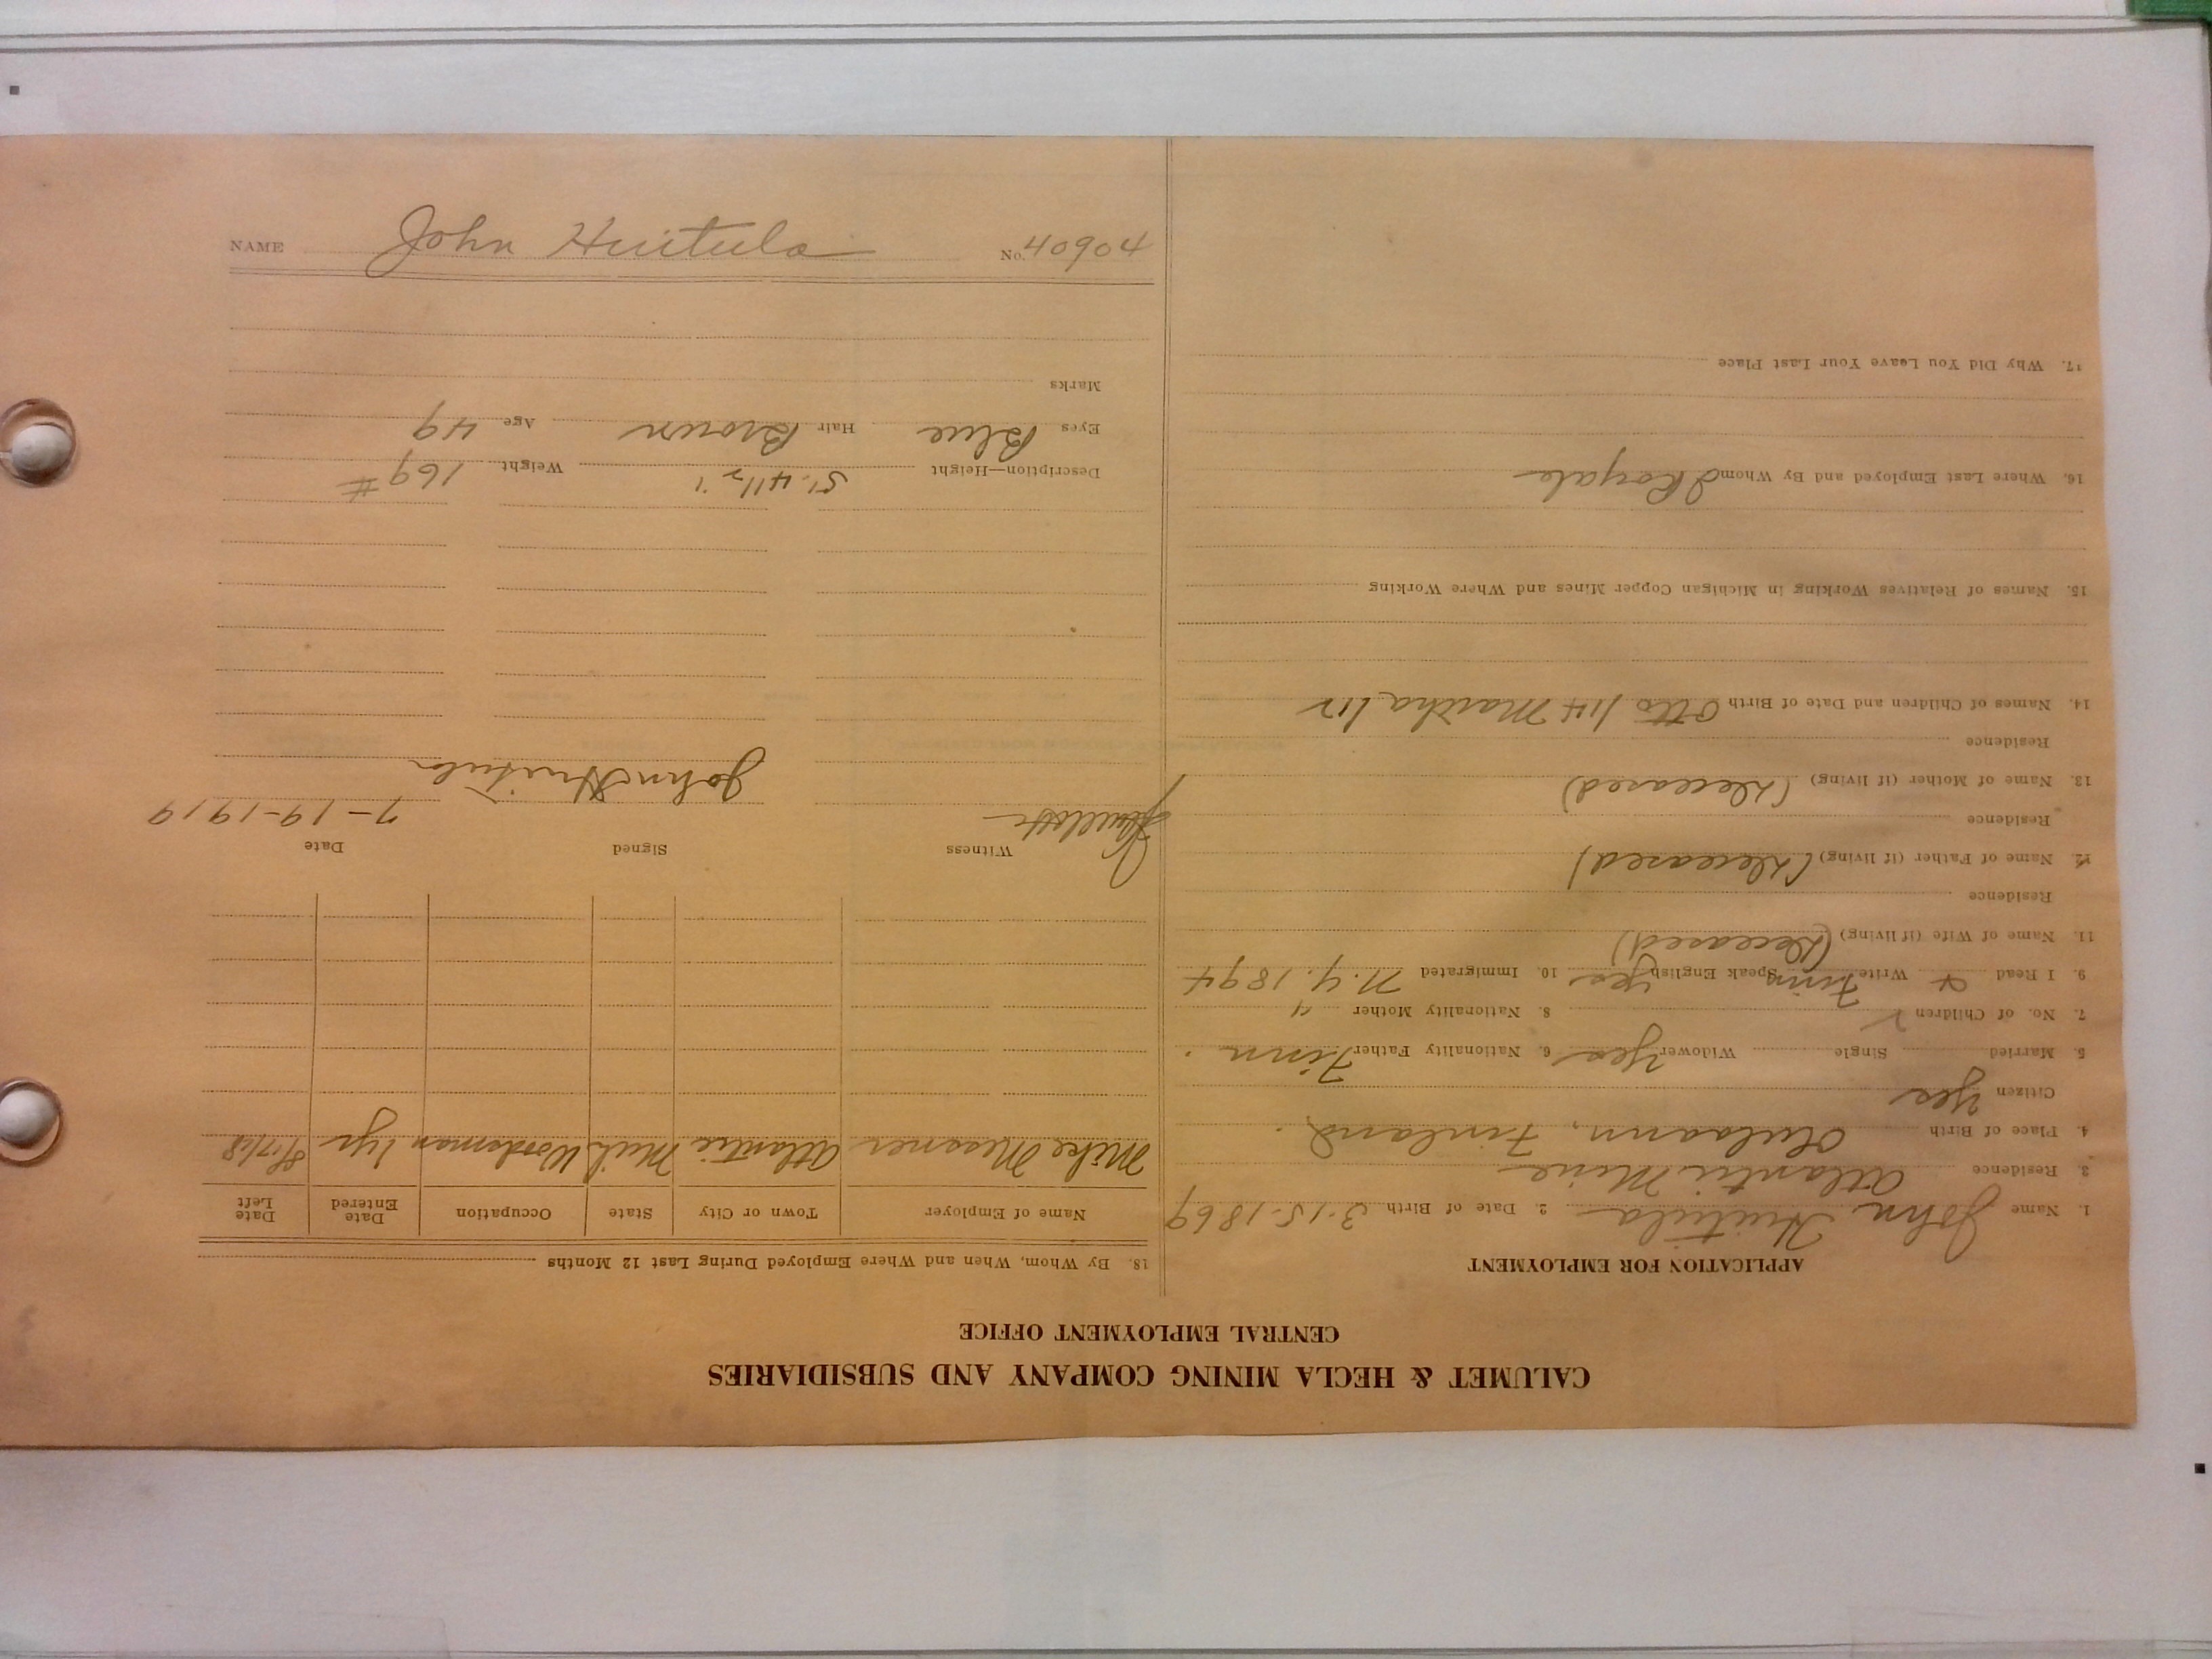 CALUMET & HECLA MINING COMPANY AND SUBSIDIARIES
CENTRAL EMPLOYMENT OFFICE
APPLICATION FOR EMPLOYMENT
1. Name John Huitula 2. Date of Birth 3-15-1869
3. Residence Atlantic Mine
4. Place of Birth Finland.
Citizen Yes
5. Married Single Widower Yes 6. Nationality Father Finn.
7. No. of Children 2 8. Nationality Mother "
9. I Read & Write Finn Speak English yes 10. Immigrated N.Y. 1894
11. Name of Wife (if living) (Deceased)
Residence
12. Name of Father (if living) (Deceased)
Residence
13. Name of Mother (if living) (Deceased)
Residence
14. Names of Children and Date of Birth Otto 14 Martha 12
15. Names of Relatives Working in Michigan Copper Mines and Where Working
16. Where Last Employed and By Whom I Royale
17. Why Did You Leave Your Last Place
18. By Whom, When and Where Employed During Last 12 Months
Name of Employer Town or City State Occupation Date Entered Date Left
Mike Messner Atlantic Mich Woodsman 1 yr
Witness Signed Date
7-19-1919
John Huitula
Description—Height 5'. 4 1/2" Weight 169 #
Eyes Blue Hair Brown Age 49
Marks
NAME John Huitula No. 40904